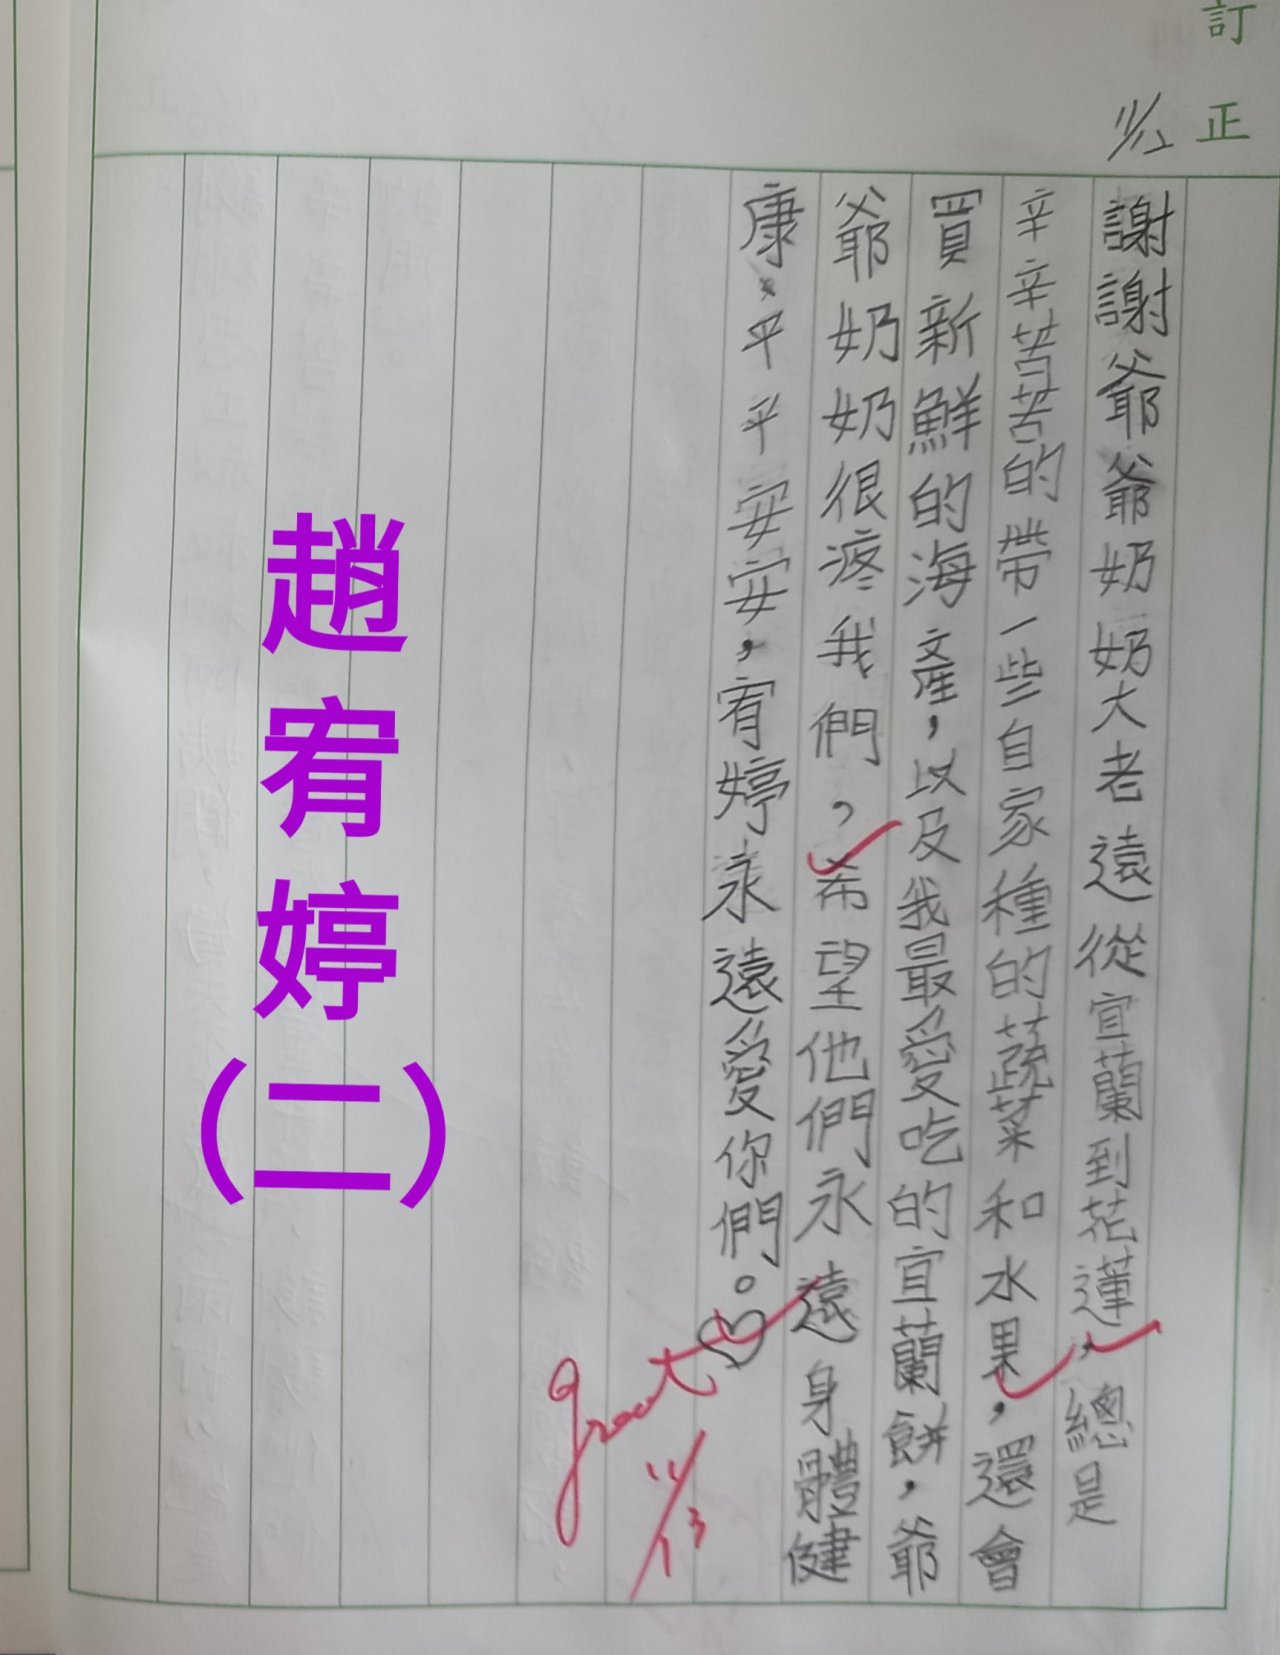 訂正
11/12
謝謝爺爺奶奶大老遠從宜蘭到花蓮，總是
辛辛苦苦的帶一些自家種的蔬菜和水果，還會
買新鮮的海產，以及我最愛吃的宜蘭餅，爺
爺奶奶很疼我們，希望他們永遠身體健
康、平平安安，宥婷永遠愛你們。♡
great
11/13
趙宥婷
（二）